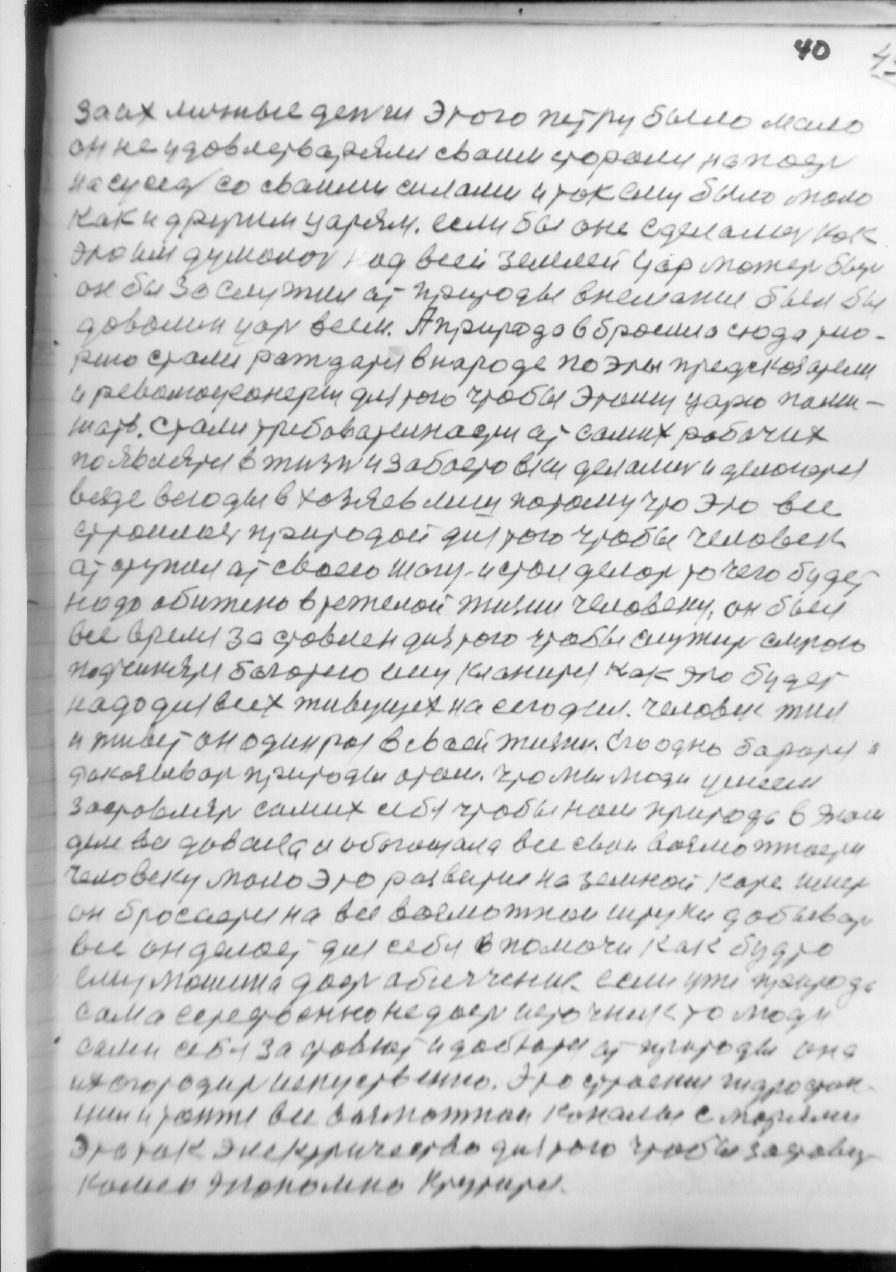 40
за их личные деньги Этого петру было мало
он не удовлетваряли сваим сторони напоер
насусед со сваими силами и так ему было мало
как и другим царям. если бы оне сделали как
это им думалось над всей землей Цар может быт
он бы заслужил от природы внемание был бы
даволин цар всем. А природа вбросила сюда
стали раждатся в народе поэты предсказатели
и революцеонеры для того чтобы Этому царю
стали требоват от самих рабочих
появлятся в жизни забастовки делалис и делаются
везде всегды в хозяев лиш потому что Это все
строилось природой для того чтобы человек
отступил от своего шагу. и стал делат то чего будет
надо обижено в тежелой жизни человеку, он был
все время заставлен для того чтобы служит
подчинятся багатого ему кланятся как это будет
надо для всех живущех на сегодня. человек жил
и живет он один раз в своей жизни. Его одно
природы что мы люди умеем
заставлят самих себя чтобы нам природа в этом
деле все давала и обогащала все свои возможности
человеку мало Это развитие на земной коре
он бросается на все возможнаи добыват
все он делает для себя в помочи как будто
ему машина дает облегчение. если уже природа
сама не дает источник то люди
сами себя заставют и добются от природы она
их огородит искуственно. Это строение гидростан-
ции и также все возможнаи каналы с морями
Это так Электричество для того чтобы заставит
колесо экономно крутится.